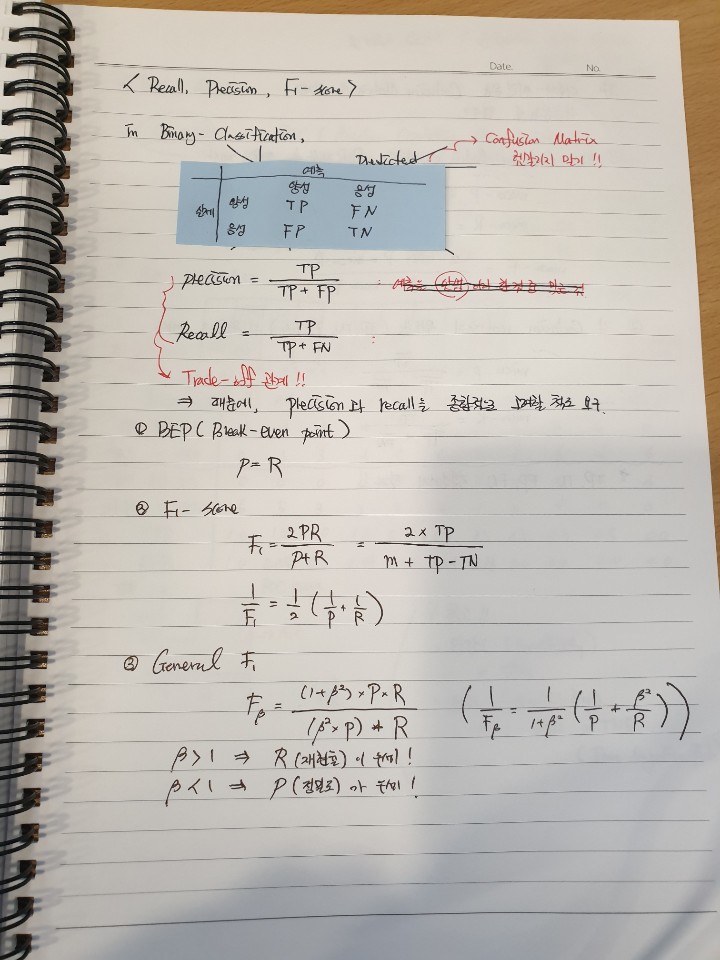 Date. No.
< Recall, Precision, F1-score >
In Binary-Classification,
Predicted → Confusion Matrix
헷갈리지 말기 !!
예측
양성 음성
실제 양성 TP FN
음성 FP TN
precision = TP / (TP + FP) :
Recall = TP / (TP + FN) :
Trade-off 관계 !!
⇒ 때문에, precision과 recall을 종합적으로 고려할 척도 요구.
① BEP ( Break-even point )
P = R
② F1- score
F1 = 2PR / (P+R) = 2 × TP / (m + TP - TN)
1/F1 = 1/2 ( 1/P + 1/R )
③ General F1
Fβ = (1+β²) × P × R / ((β² × P) + R) ( 1/Fβ = 1/(1+β²) ( 1/P + β²/R ) )
β > 1 ⇒ R (재현율) 이 우세 !
β < 1 ⇒ P (정밀도) 가 우세 !